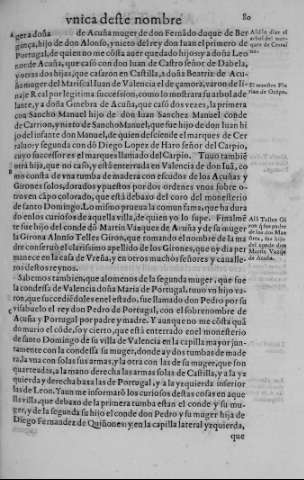 vnica deste nombre
80
ger a doña de Acuña muger de don Fernãdo duque de Ber
gança, hijo de don Alonso, y nieto del rey don Iuan el primero de
Portugal, de quien no me cõsta auer quedado hijos: y a doña Leo
nor de Acuña, que casó con don Iuan de Castro señor de Dabela,
y otras dos hijas, que casaron en Castilla, a doña Beatriz de Acu-
ña muger del Marisçal Iuan de Valencia el de çamora, varon de li-
naje Real por legitima succession, como lo mostrara su arbol adelã
te, y a doña Ginebra de Acuña, que casó dos vezes, la primera
con Sancho Manuel hijo de don Iuan Sanchez Manuel conde
de Carrion, y nieto de Sancho Manuel, que fue hijo de don Iuan hi
jo del infante don Manuel, de quien desciende el marques de Cer
ralao: y segunda con dõ Diego Lopez de Haro señor del Carpio,
cuyo successor es el marques llamado del Carpio. Tuuo tambiẽ
otra hija, que no casó, y esta enterrada en Valencia de don Iuã, co
mo consta de vna tumba de madera con escudos de los Acuñas y
Girones solos, dorados y puestos por dos ordenes vnos sobre o-
tros en capo colorado, que esta debaxo del coro del monesterio
de santo Domingo. Lo mismo prueua la comun fama, que ha dura
do en los curiosos de aquella villa, de quien yo lo supe. Finalmẽ
te fue hijo del conde dõ Martin Vazquez de Acuña y de su muger
la Girona Alonso Tellez Giron, que tomando el nombre de la ma
dre construyó el clarissimo apellido de los Girones, que oy dia per
manece en la casa de Vreña, y en otros muchos señores y caualle-
ros destos reynos.
Sabemos tambien, que alomenos de la segunda muger, que fue
la condesa de Valencia doña Maria de Portugal, tuuo vn hijo va-
ron, que succedió deles en el estado, fue llamado don Pedro por su
visabuelo el rey don Pedro de Portugal, con el sobrenombre de
Acuña y Portugal por padre y madre. Y aunque no me cõsta quã
do murio el cõde, soy cierto, que està enterrado en el monesterio
de santo Domingo de su villa de Valencia en la capilla mayor jun-
tamente con la condesa su muger, donde ay dos tumbas de made
ra, la vna con solas sus armas, y la otra con las de su muger, que son
quarteadas, a la mano derecha las armas solas de Castilla, y a la yz
quierda y derecha baxa las de Portugal, y a la yzquierda inferior
las de Leon. Y aun me informarõ los curiosos destas cosas en aque
lla villa, que debaxo de la primera tumba estan el conde y su mu-
ger, y de la segunda su hijo el conde don Pedro y su muger hija de
Diego Fernandez de Quiñones: y en la capilla lateral yzquierda,
que